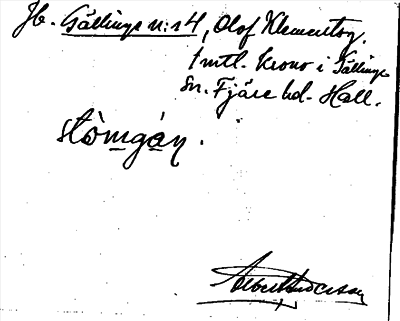 Jb. Gällinge n:r 4, Olof Klementsg.
1 mtl. Krono i Gällinge
sn. Fjäre hd. Hall.
stòmgán.
Albert Andersson